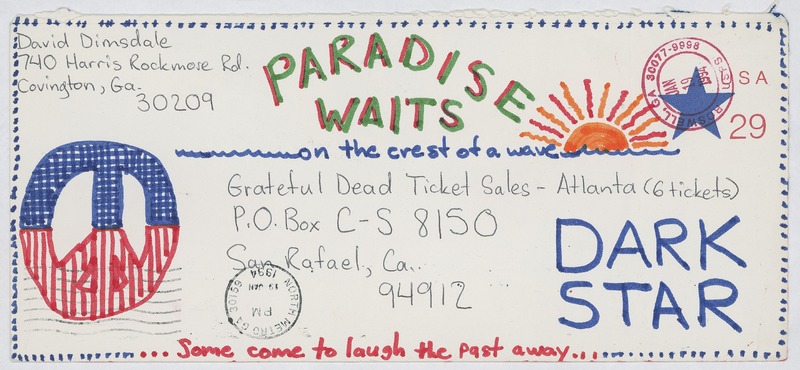 David Dimsdale
740 Harris Rockmose Rd.
Covington, Ga.
30209
PARADISE
WAITS
on the crest of a wave
ROSWELL, GA 30077-9998
JAN
19
1994
USPS
USA
29
Grateful Dead Ticket Sales - Atlanta (6 tickets)
P.O. Box C-S 8150
San Rafael, Ca.
94912
DARK
STAR
NORTH METRO GA 30159
PM
19 JAN
1994
... Some come to laugh the past away...